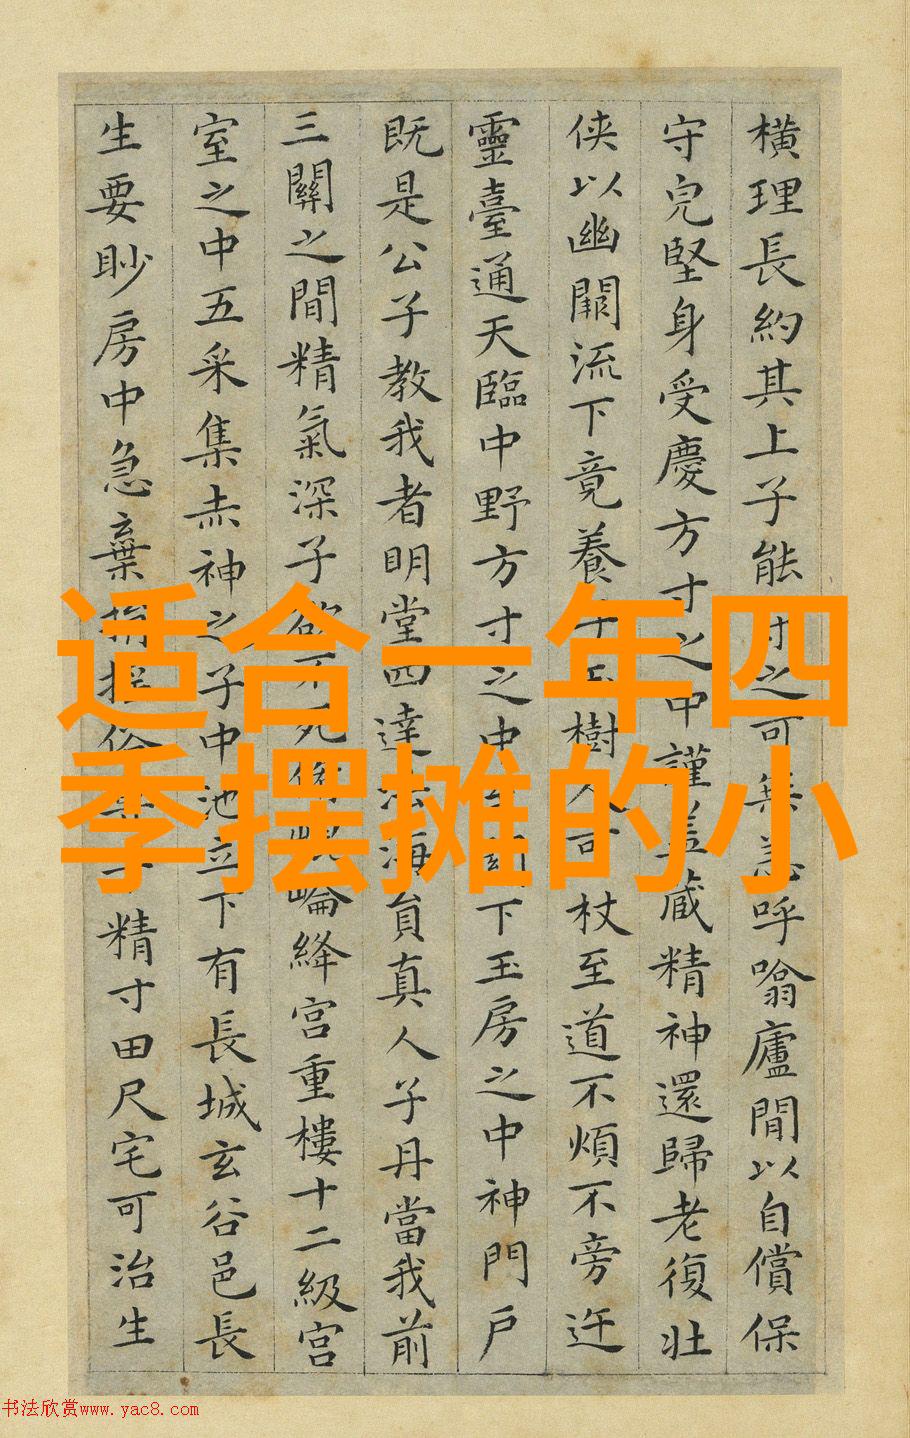 橫理長約其上子能之可無恙呼噏廬間以自償保
守皃堅身受慶方寸之中謹盖藏精神還歸老復壯
俠以幽闕流下竟養樹人可杖至道不煩不旁迕
靈臺通天臨中野方寸之中下玉房之中神門戶
既是公子教我者明堂四達法海員真人子丹當我前
三關之間精氣深子欲不死崘絳宮重樓十二級宮
室之中五采集赤神之子中池立下有長城玄谷邑長
生要眇房中急棄捐俗子精寸田尺宅可治生
适合一年四
季摆摊的小
书法欣赏www.yac8.com